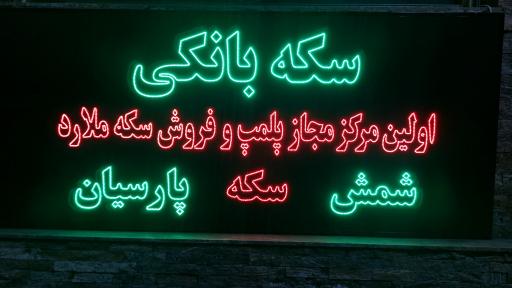 سکه بانکی
اولین مرکز مجاز پلمپ و فروش سکه ملارد
شمش سکه پارسیان